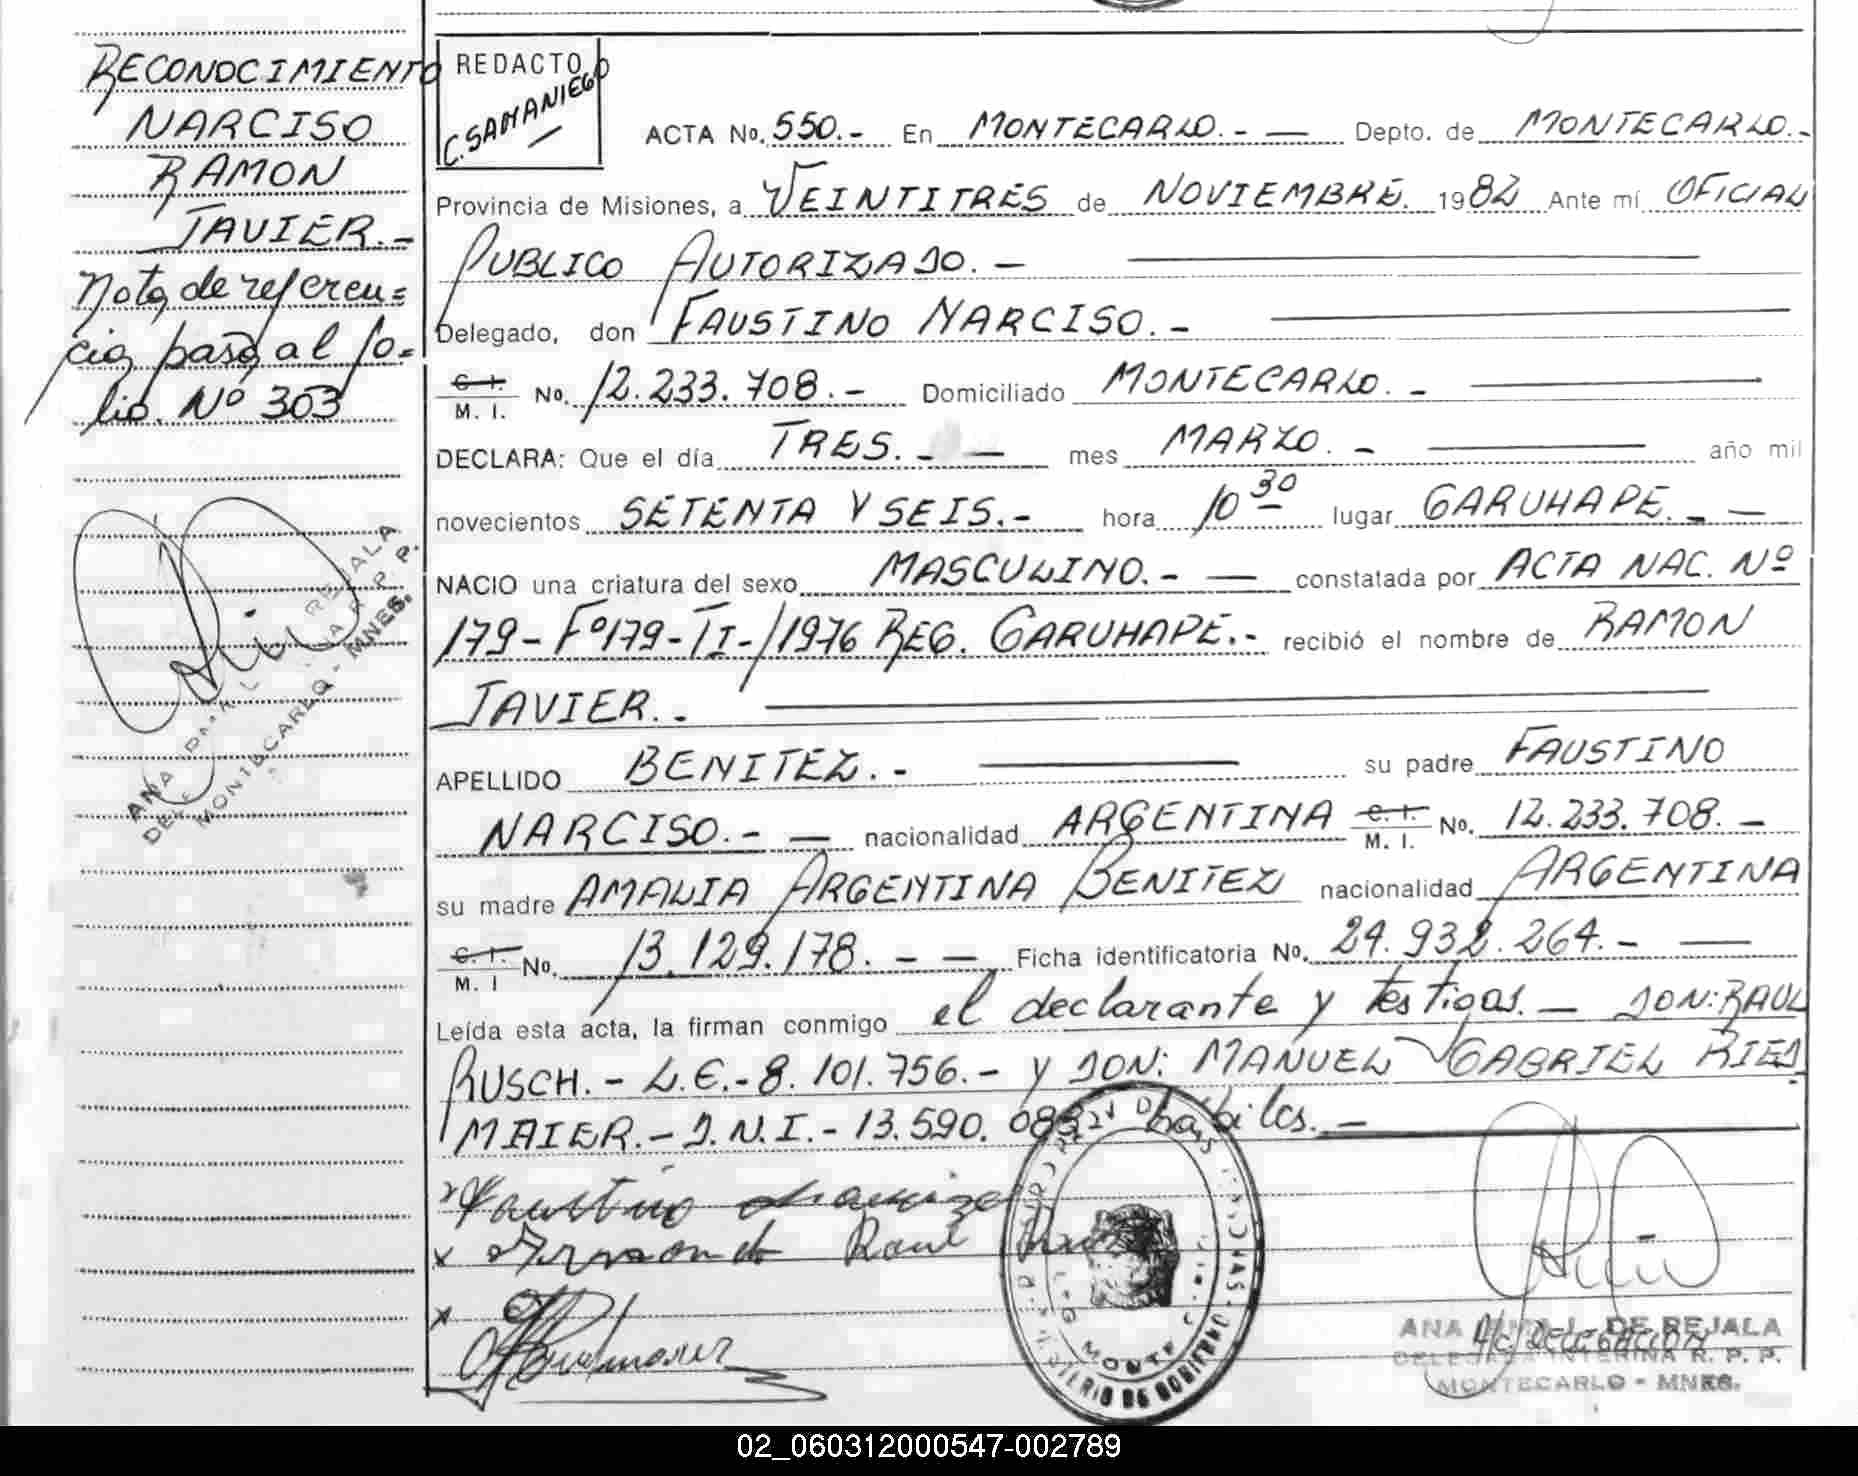 RECONOCIMIENTO
NARCISO
RAMON
JAVIER.-
Nota de referen=
cia pasa al fo=
lio. Nº 303
ANA L. REJALA
MONTECARLO - MNES.
REDACTO
C. SAMANIEGO
ACTA No. 550.- En MONTECARLO.- — Depto. de MONTECARLO.-
Provincia de Misiones, a VEINTITRES de NOVIEMBRE. 1982 Ante mí OFICIAL
PUBLICO AUTORIZADO.-
Delegado, don FAUSTINO NARCISO.-
C. I. M. I. No. 12.233.708.- Domiciliado MONTECARLO.-
DECLARA: Que el día TRES.- — mes MARZO.- año mil
novecientos SETENTA Y SEIS.- hora 10 30 lugar GARUHAPE.- —
NACIO una criatura del sexo MASCULINO.- — constatada por ACTA NAC. Nº
179-Fº179-TI-/1976 REG. GARUHAPE.- recibió el nombre de RAMON
JAVIER.-
APELLIDO BENITEZ.- su padre FAUSTINO
NARCISO.- — nacionalidad ARGENTINA C. I. M. I. No. 12.233.708.-
su madre AMALIA ARGENTINA BENITEZ nacionalidad ARGENTINA
C. I. M. I No. 13.129.178.- — Ficha identificatoria No. 24.932.264.- —
Leída esta acta, la firman conmigo el declarante y testigos.— DON: RAUL
RUSCH.- L.E.-8.101.756.- y DON: MANUEL GABRIEL RIED
MAIER.- D.N.I.- 13.590.083 habiles.—
Faustino
x Armando Raul
x
MONTE
MINISTERIO DE GOBIERNO
ANA L. DE REJALA
A/C. DELEGACION
DELEGADA INTERINA R. P. P.
MONTECARLO - MNES.
02_060312000547-002789